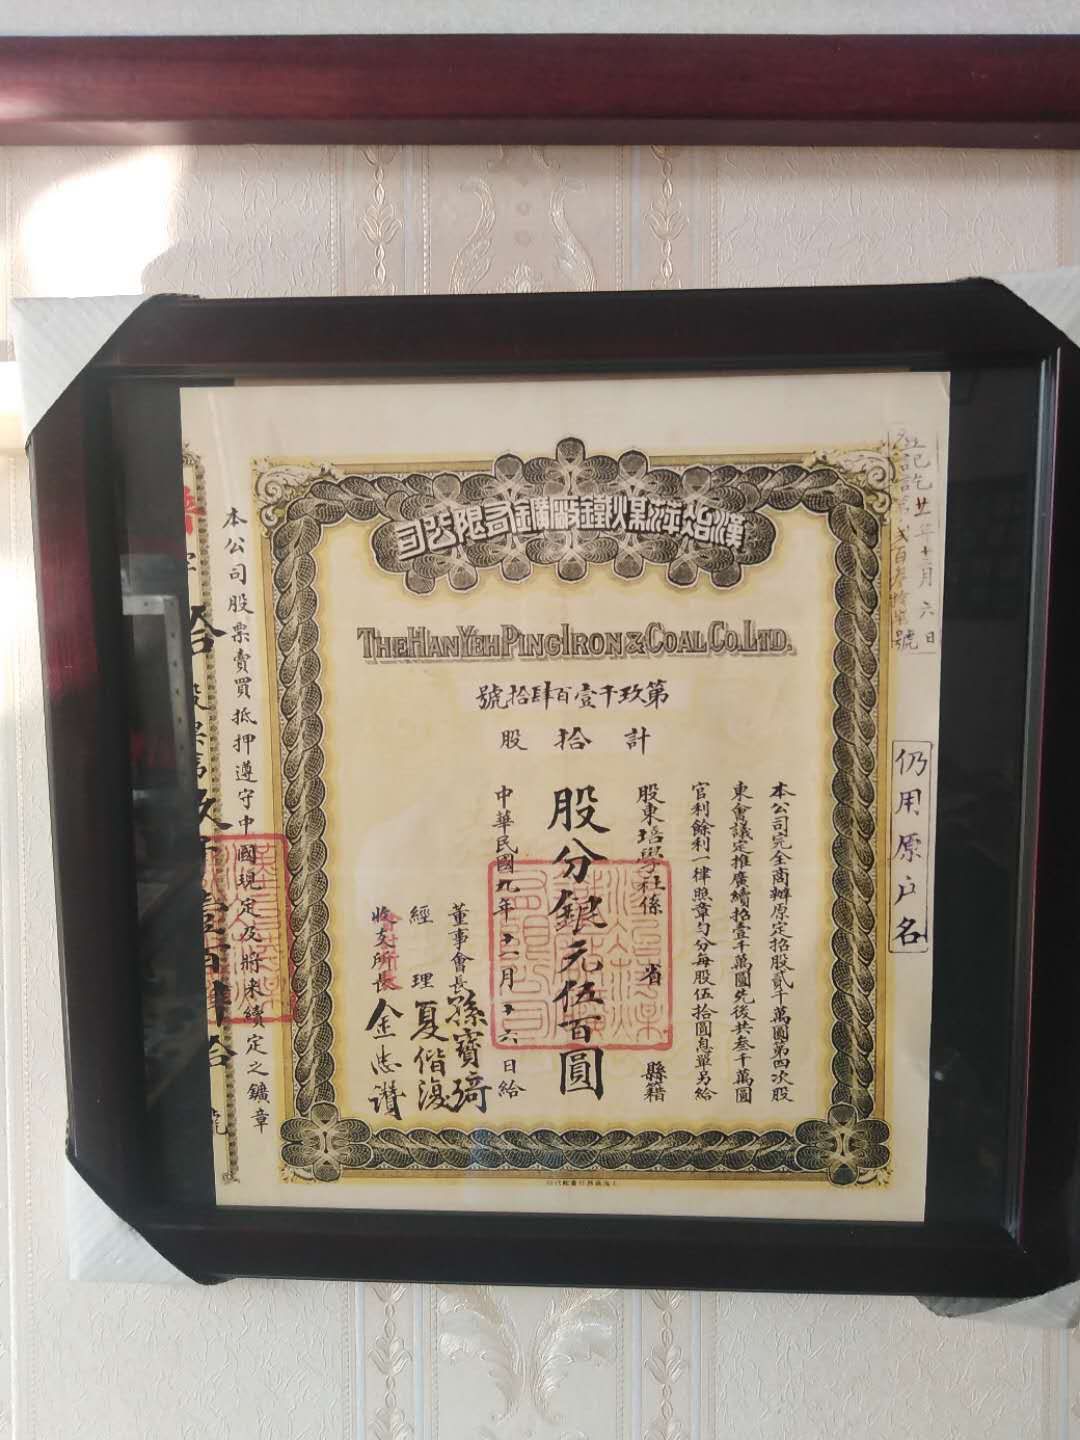 漢冶萍煤鐵廠礦有限公司
THE HAN YEH PING IRON & COAL CO. LTD.
第玖千壹百肆拾號
計拾股
本公司完全商辦原定招股貳千萬圓第四次股
東會議定推廣續招壹千萬圓先後共叁千萬圓
官利餘利一律照章勻分每股伍拾圓息單另給
股東培學社係 省 縣籍
股分銀元伍百圓
中華民國九年十一月十六日給
董事會長孫寶琦
經理夏偕復
收支所長金忠讚
本公司股票賣買抵押遵守中國現定及將來續定之鑛章
廿一年十二月六日
仍用原户名